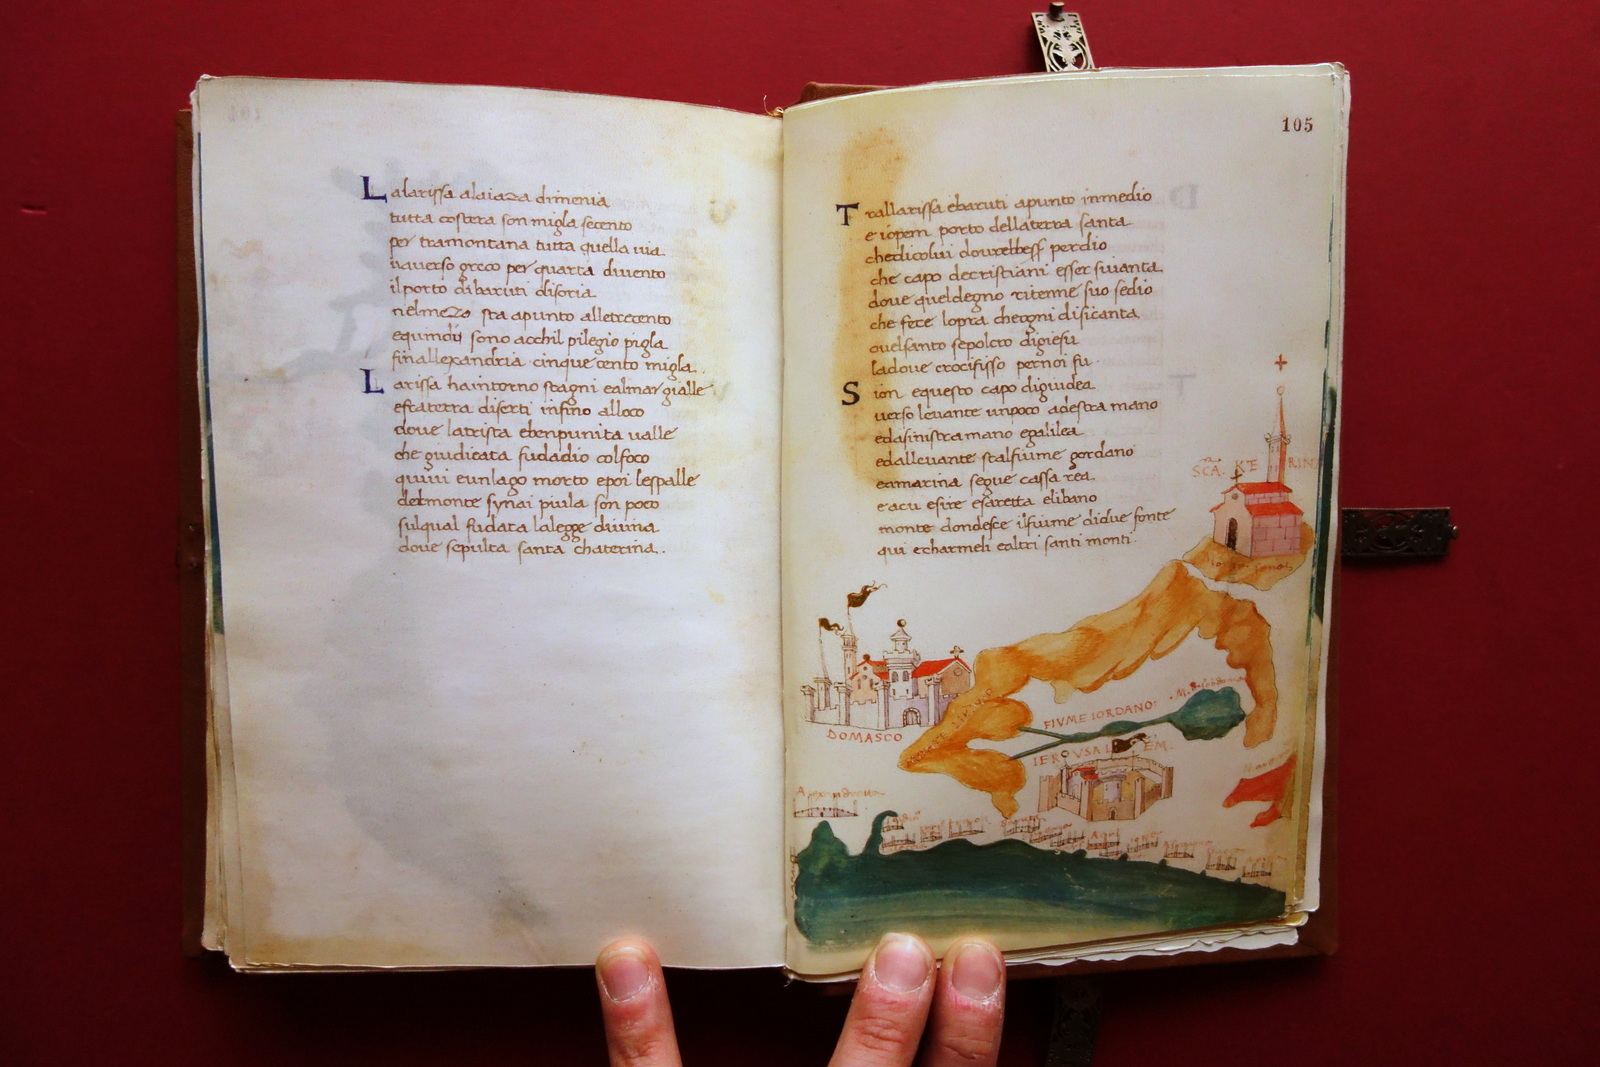 Lalarissa alaiazza dimenia
tutta costera son migla secento
per tramontana tutta quella uia
uauerso greco per quarta diuento
il porto dibaruti disoria
nelmezo sta apunto alletrecento
equindii sono acchil pilegio pigla
finallexandria cinque cento migla.
Larissa haintorno stagni ealmar gialle
efraterra diserti infino alloco
doue latrista ebenpunita ualle
che giudicata fudadio colfoco
quiui eunlago morto epoi lespalle
delmonte synai piula son poco
sulqual fudata lalegge diuina
doue sepulta santa chaterina.
105
Trallarissa ebaruti apunto inmedio
e iopem porto dellaterra santa
chedicolui dourebbess perdio
che capo decristiani esser siuanta
doue queldegno ritenne suo sedio
che fece lopra cheogni disicanta
quelsanto sepolcro digiesu
ladoue crocifisso pernoi fu
Sion equesto capo digiudea
uerso leuante unpoco adestra mano
edasinistramano egalilea
edalleuante stalfiume gordano
eamarina segue cassa rea
eacu esire esaretta elibano
monte dondesce ilfiume didue fonte
qui echarmeli ealtri santi monti
SCA. KE RIN
DOMASCO
FIVME IORDANO
IEROVSALEM